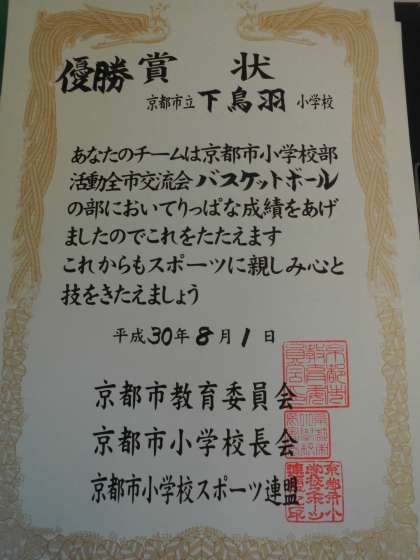 優勝 賞状
京都市立 下鳥羽 小学校
あなたのチームは京都市小学校部
活動全市交流会バスケットボール
の部においてりっぱな成績をあげ
ましたのでこれをたたえます
これからもスポーツに親しみ心と
技をきたえましょう
平成30年8月1日
京都市教育委員会
京都市小学校長会
京都市小学校スポーツ連盟